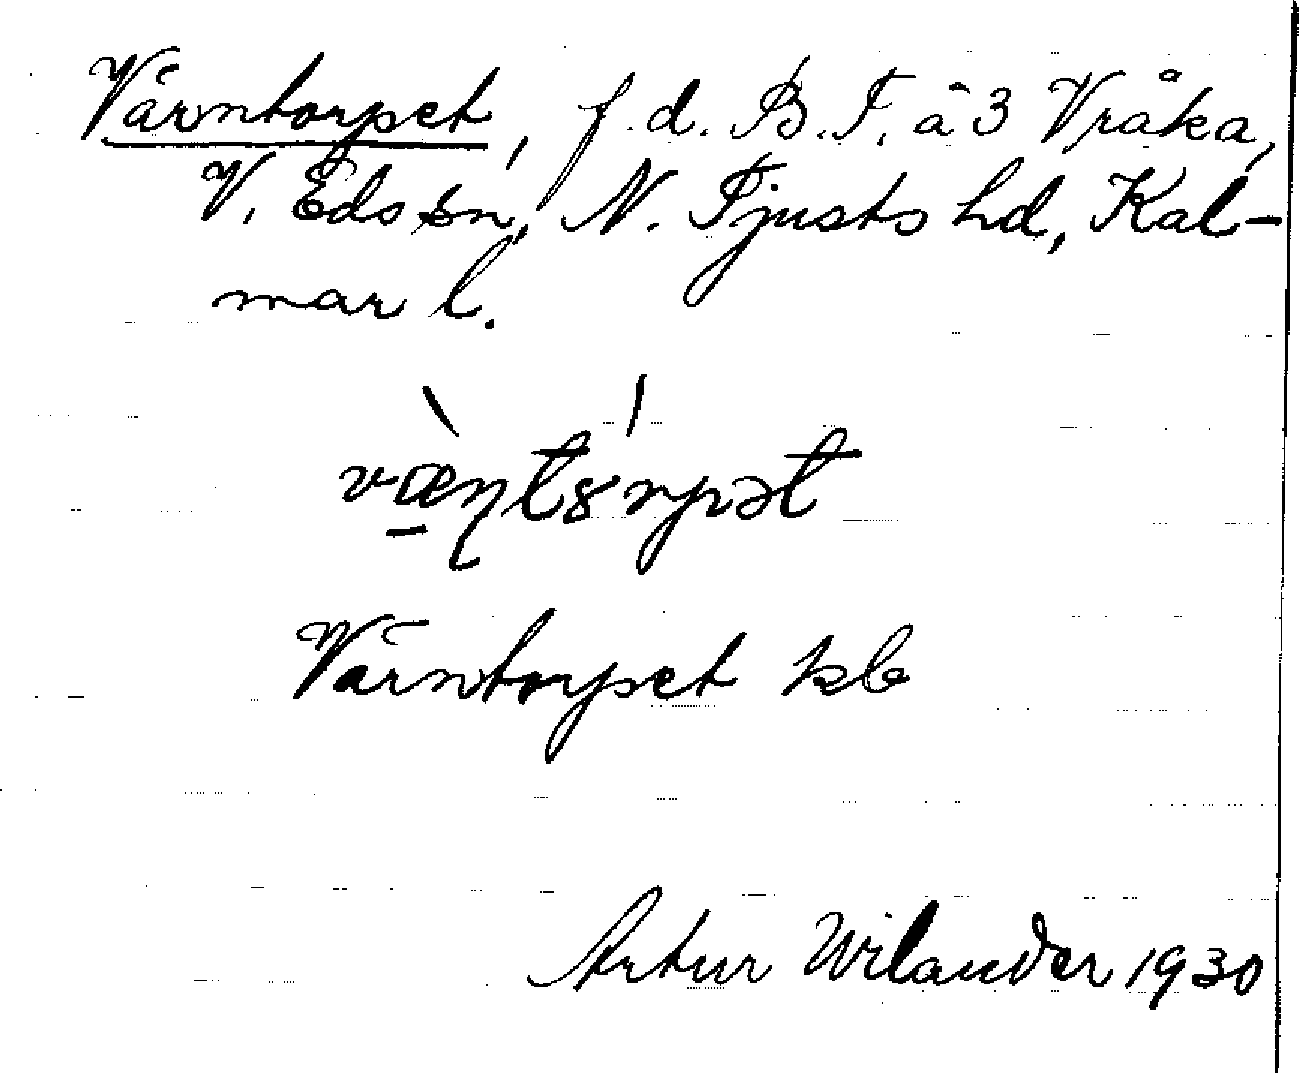 Värntorpet, f.d. B.T. å 3 Vråka,
V. Eds sn, N. Tjusts hd, Kal-
mar l.
Värntorpet kb
Artur Wilander 1930